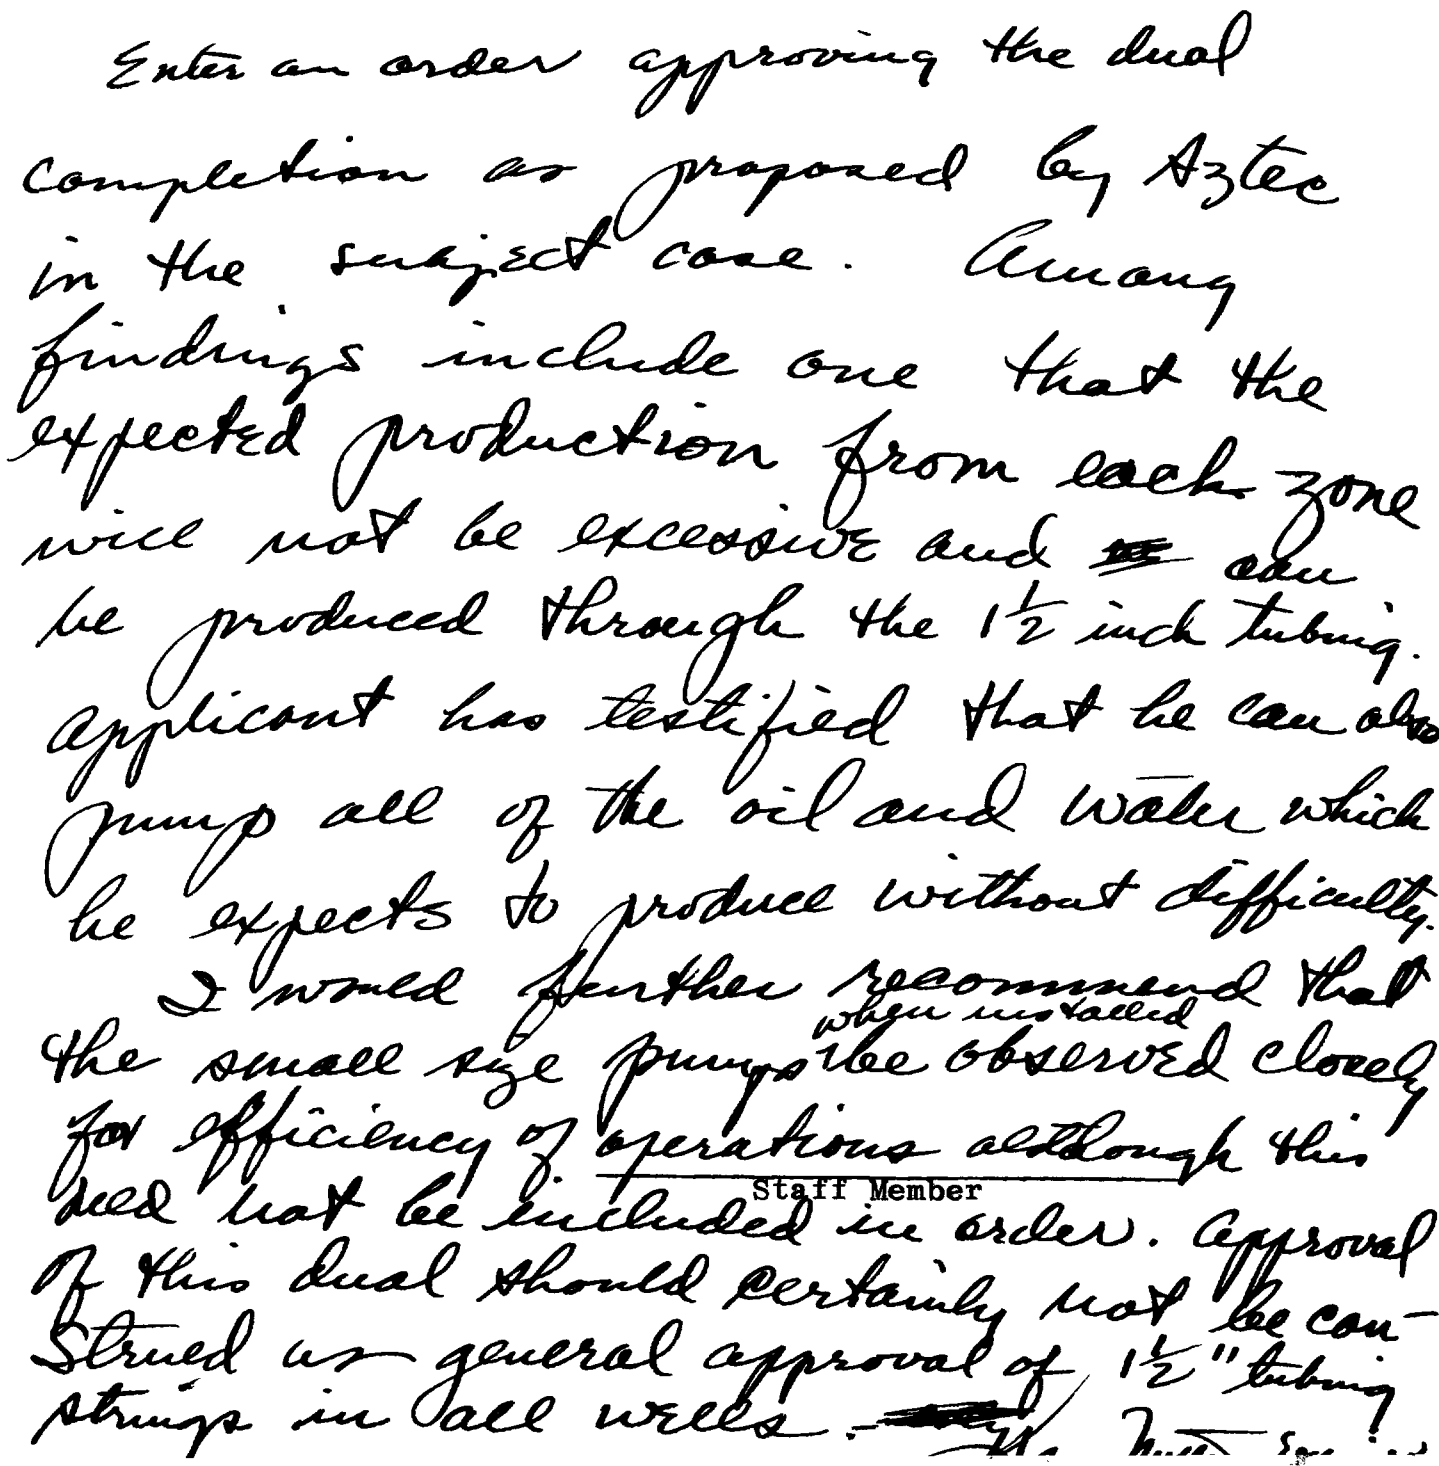 Enter an order approving the dual
completion as proposed by Aztec
in the subject case. Among
findings include one that the
expected production from each zone
will not be excessive and can
be produced through the 1½ inch tubing.
applicant has testified that he can also
pump all of the oil and water which
he expects to produce without difficulty.
I would further recommend that
when installed
the small size pumps be observed closely
for efficiency of operations although this
Staff Member
need not be included in order. Approval
of this dual should certainly not be con-
strued as general approval of 1½" tubing
strings in all wells.